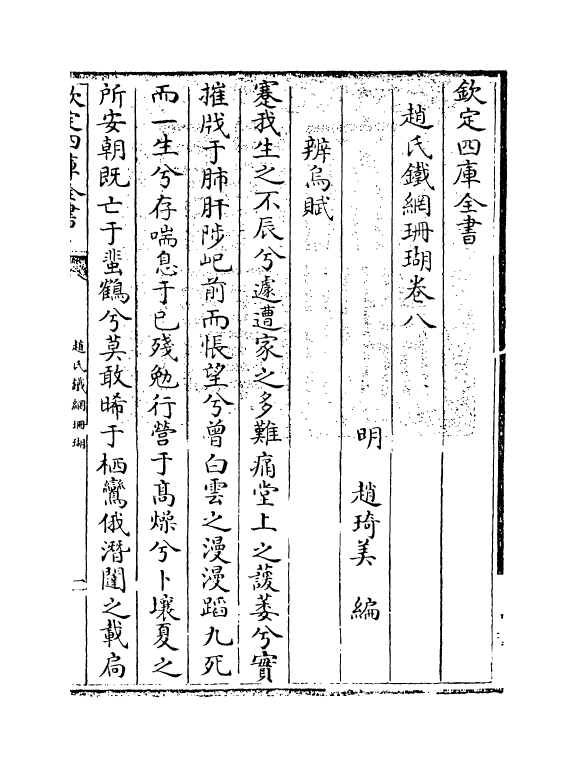 欽定四庫全書
趙氏鐵網珊瑚卷八
明　趙琦美　編
辨烏賦
蹇我生之不辰兮遽遭家之多難痛堂上之萲萎兮實
摧戕于肺肝陟屺前而悵望兮曾白雲之漫漫蹈九死
而一生兮存喘息于已殘勉行營于髙燥兮卜壤夏之
所安朝既亡于蜚鶴兮莫敢晞于栖鸞俄潛闥之載扃
欽定四庫全書
趙氏鐵網珊瑚
一